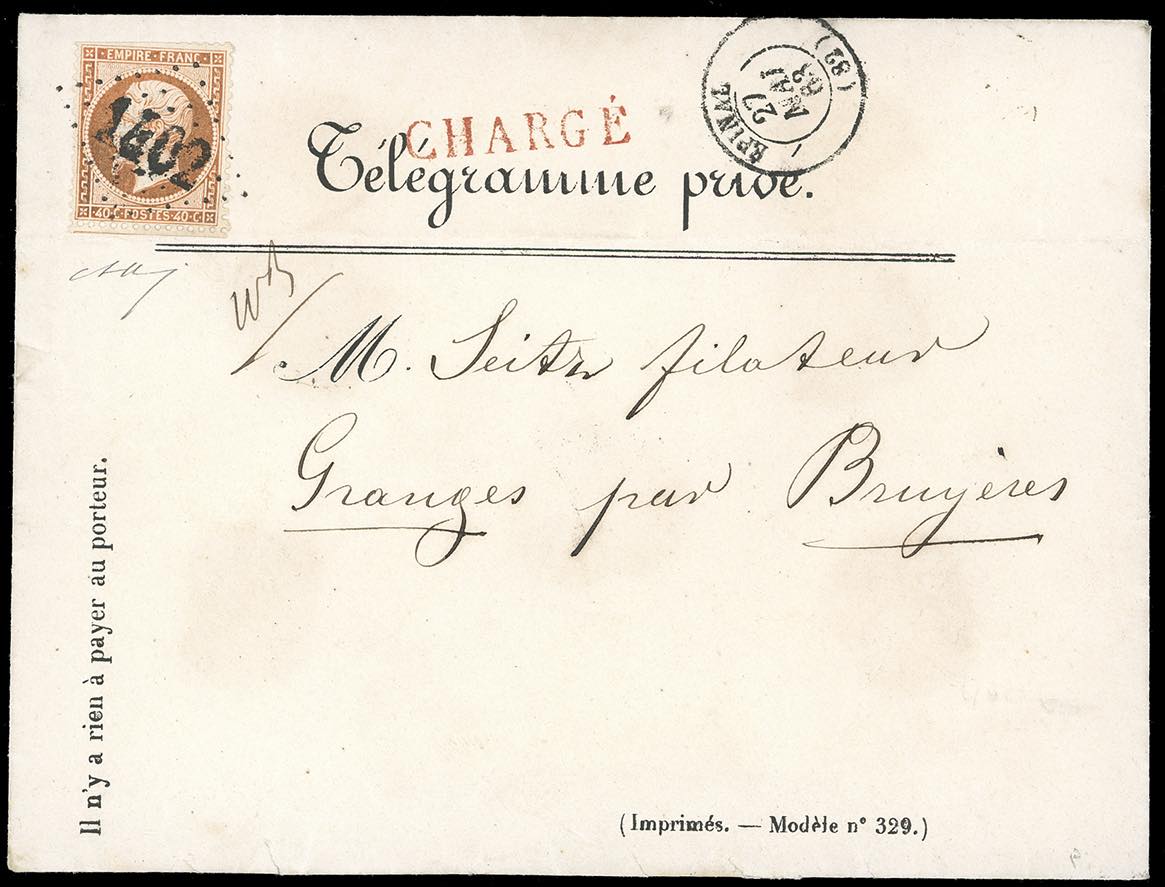 EMPIRE·FRANC·
1402
40·C·POSTES·40·C·
CHARGÉ
EPINAL
(82)
27
MAI
Télégramme privé.
M. Seitz filateur
Granges par Bruyères
Il n'y a rien à payer au porteur.
(Imprimés. — Modèle n° 329.)